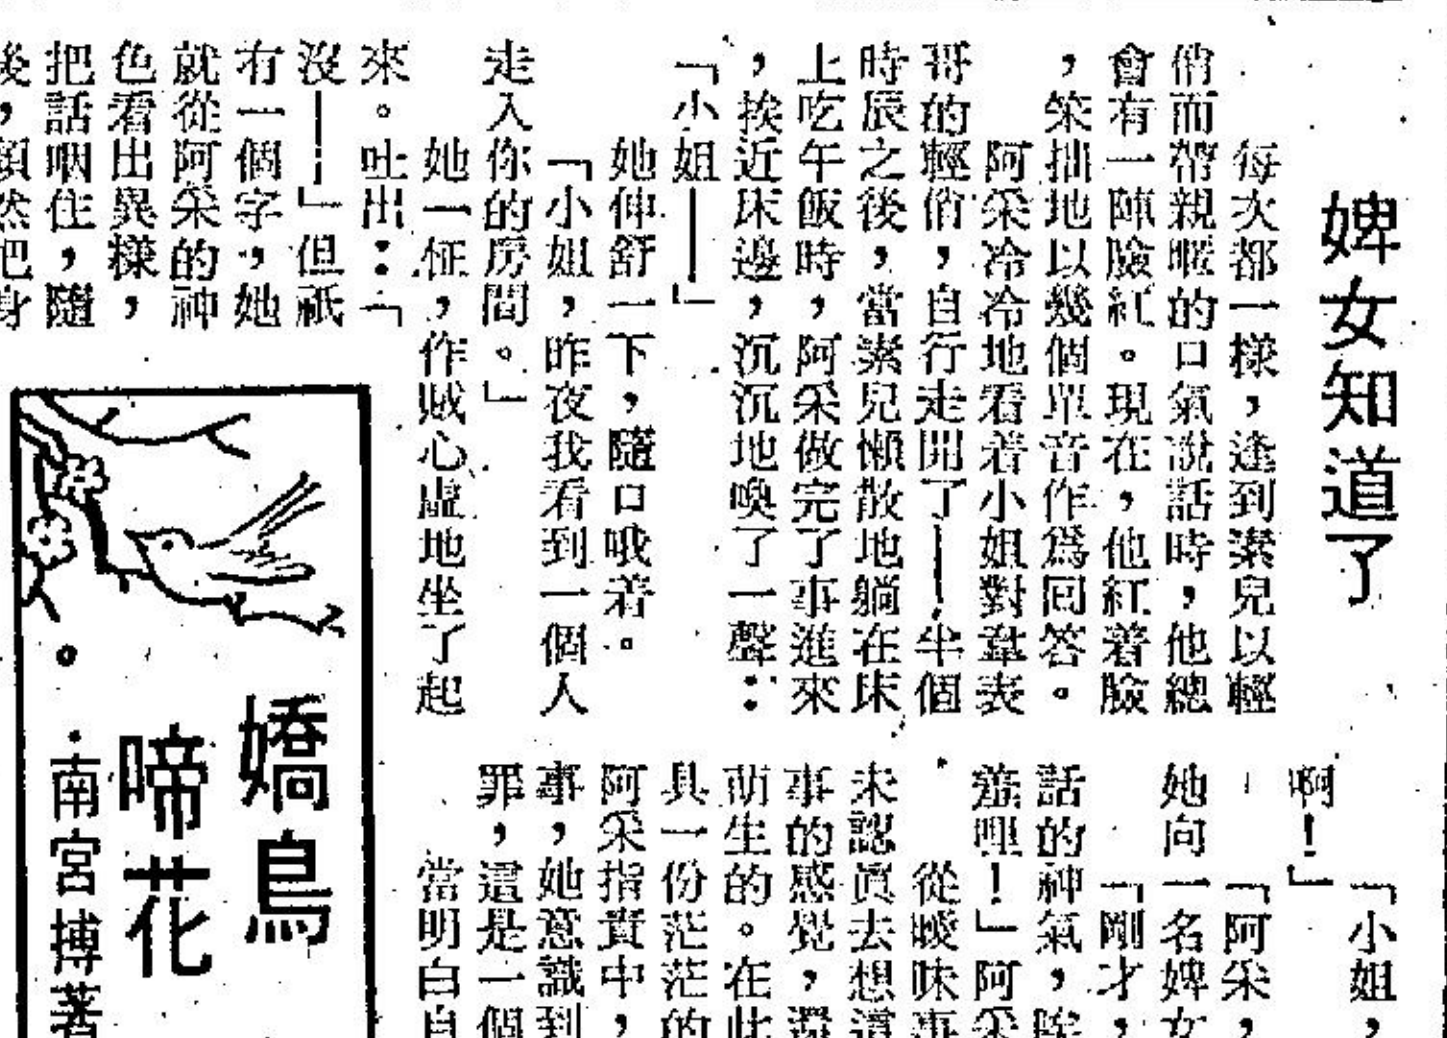 婢女知道了
每次都一樣，逢到素兒以輕
俏而帶親暱的口氣說話時，他總
會有一陣臉紅。現在，他紅着臉
，笨拙地以幾個單音作爲回答。
阿采冷冷地看着小姐對韋表
哥的輕俏，自行走開了——半個
時辰之後，當素兒懶散地躺在床
上吃午飯時，阿采做完了事進來
，挨近床邊，沉沉地喚了一聲：
「小姐——」
她伸舒一下，隨口哦着。
「小姐，昨夜我看到一個人
走入你的房間。」
她一怔，作賊心虛地坐了起
來。吐出：「
沒——」但祇
有一個字，她
就從阿采的神
色看出異樣，
把話咽住，隨
後，頹然把身
「小姐，
啊！」
「阿采，
她向一名婢女
「剛才，
話的神氣，
羞哩！」阿采
從曖昧事
未認眞去想這
事的感覺，還
萌生的。在此
具一份茫茫的
阿采指責中，
事，她意識到
罪，這是一個
當明白自
嬌鳥
啼花
．南宮搏著